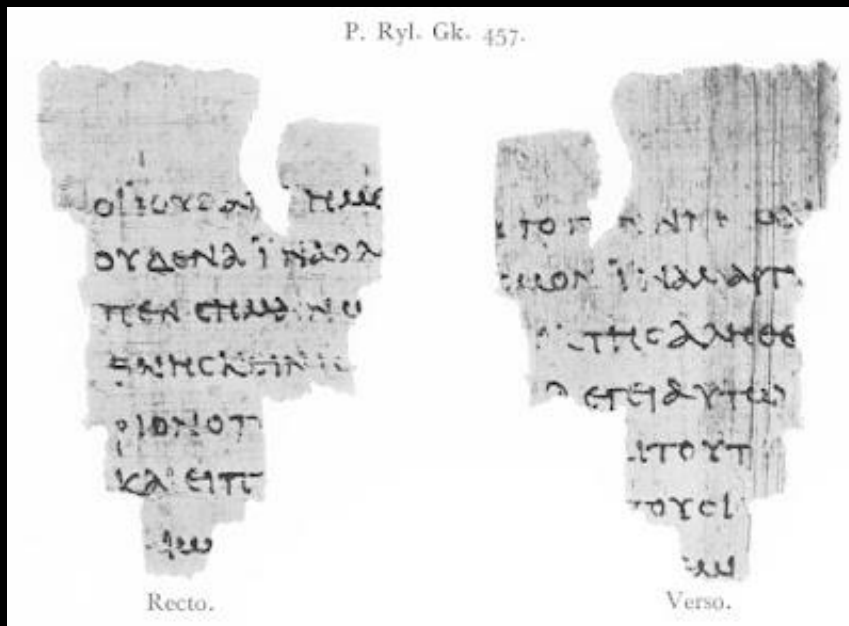 P. Ryl. Gk. 457.
ΟΙΙΟΥΔΑΙ ΗΜΕ
ΟΥΔΕΝΑΪΝΑΟΛ
ΠΕΝΣΗΜΑΙΝΩ
ΘΝΗΣΚΕΙΝΙΣ
ΡΙΟΝΟΠ
ΚΑΙΕΙΠ
ΑΙΩ
Recto.
ΤΟΓ ΝΝΗΜΑΙ
ΣΜΟΝΪΝΑΜΑΡΤΥ
ΕΚΤΗΣΑΛΗΘΕ
ΛΕΓΕΙΑΥΤΩ
ΑΙΤΟΥΤ
ΤΟΥΣΙ
ΜΙ
Verso.